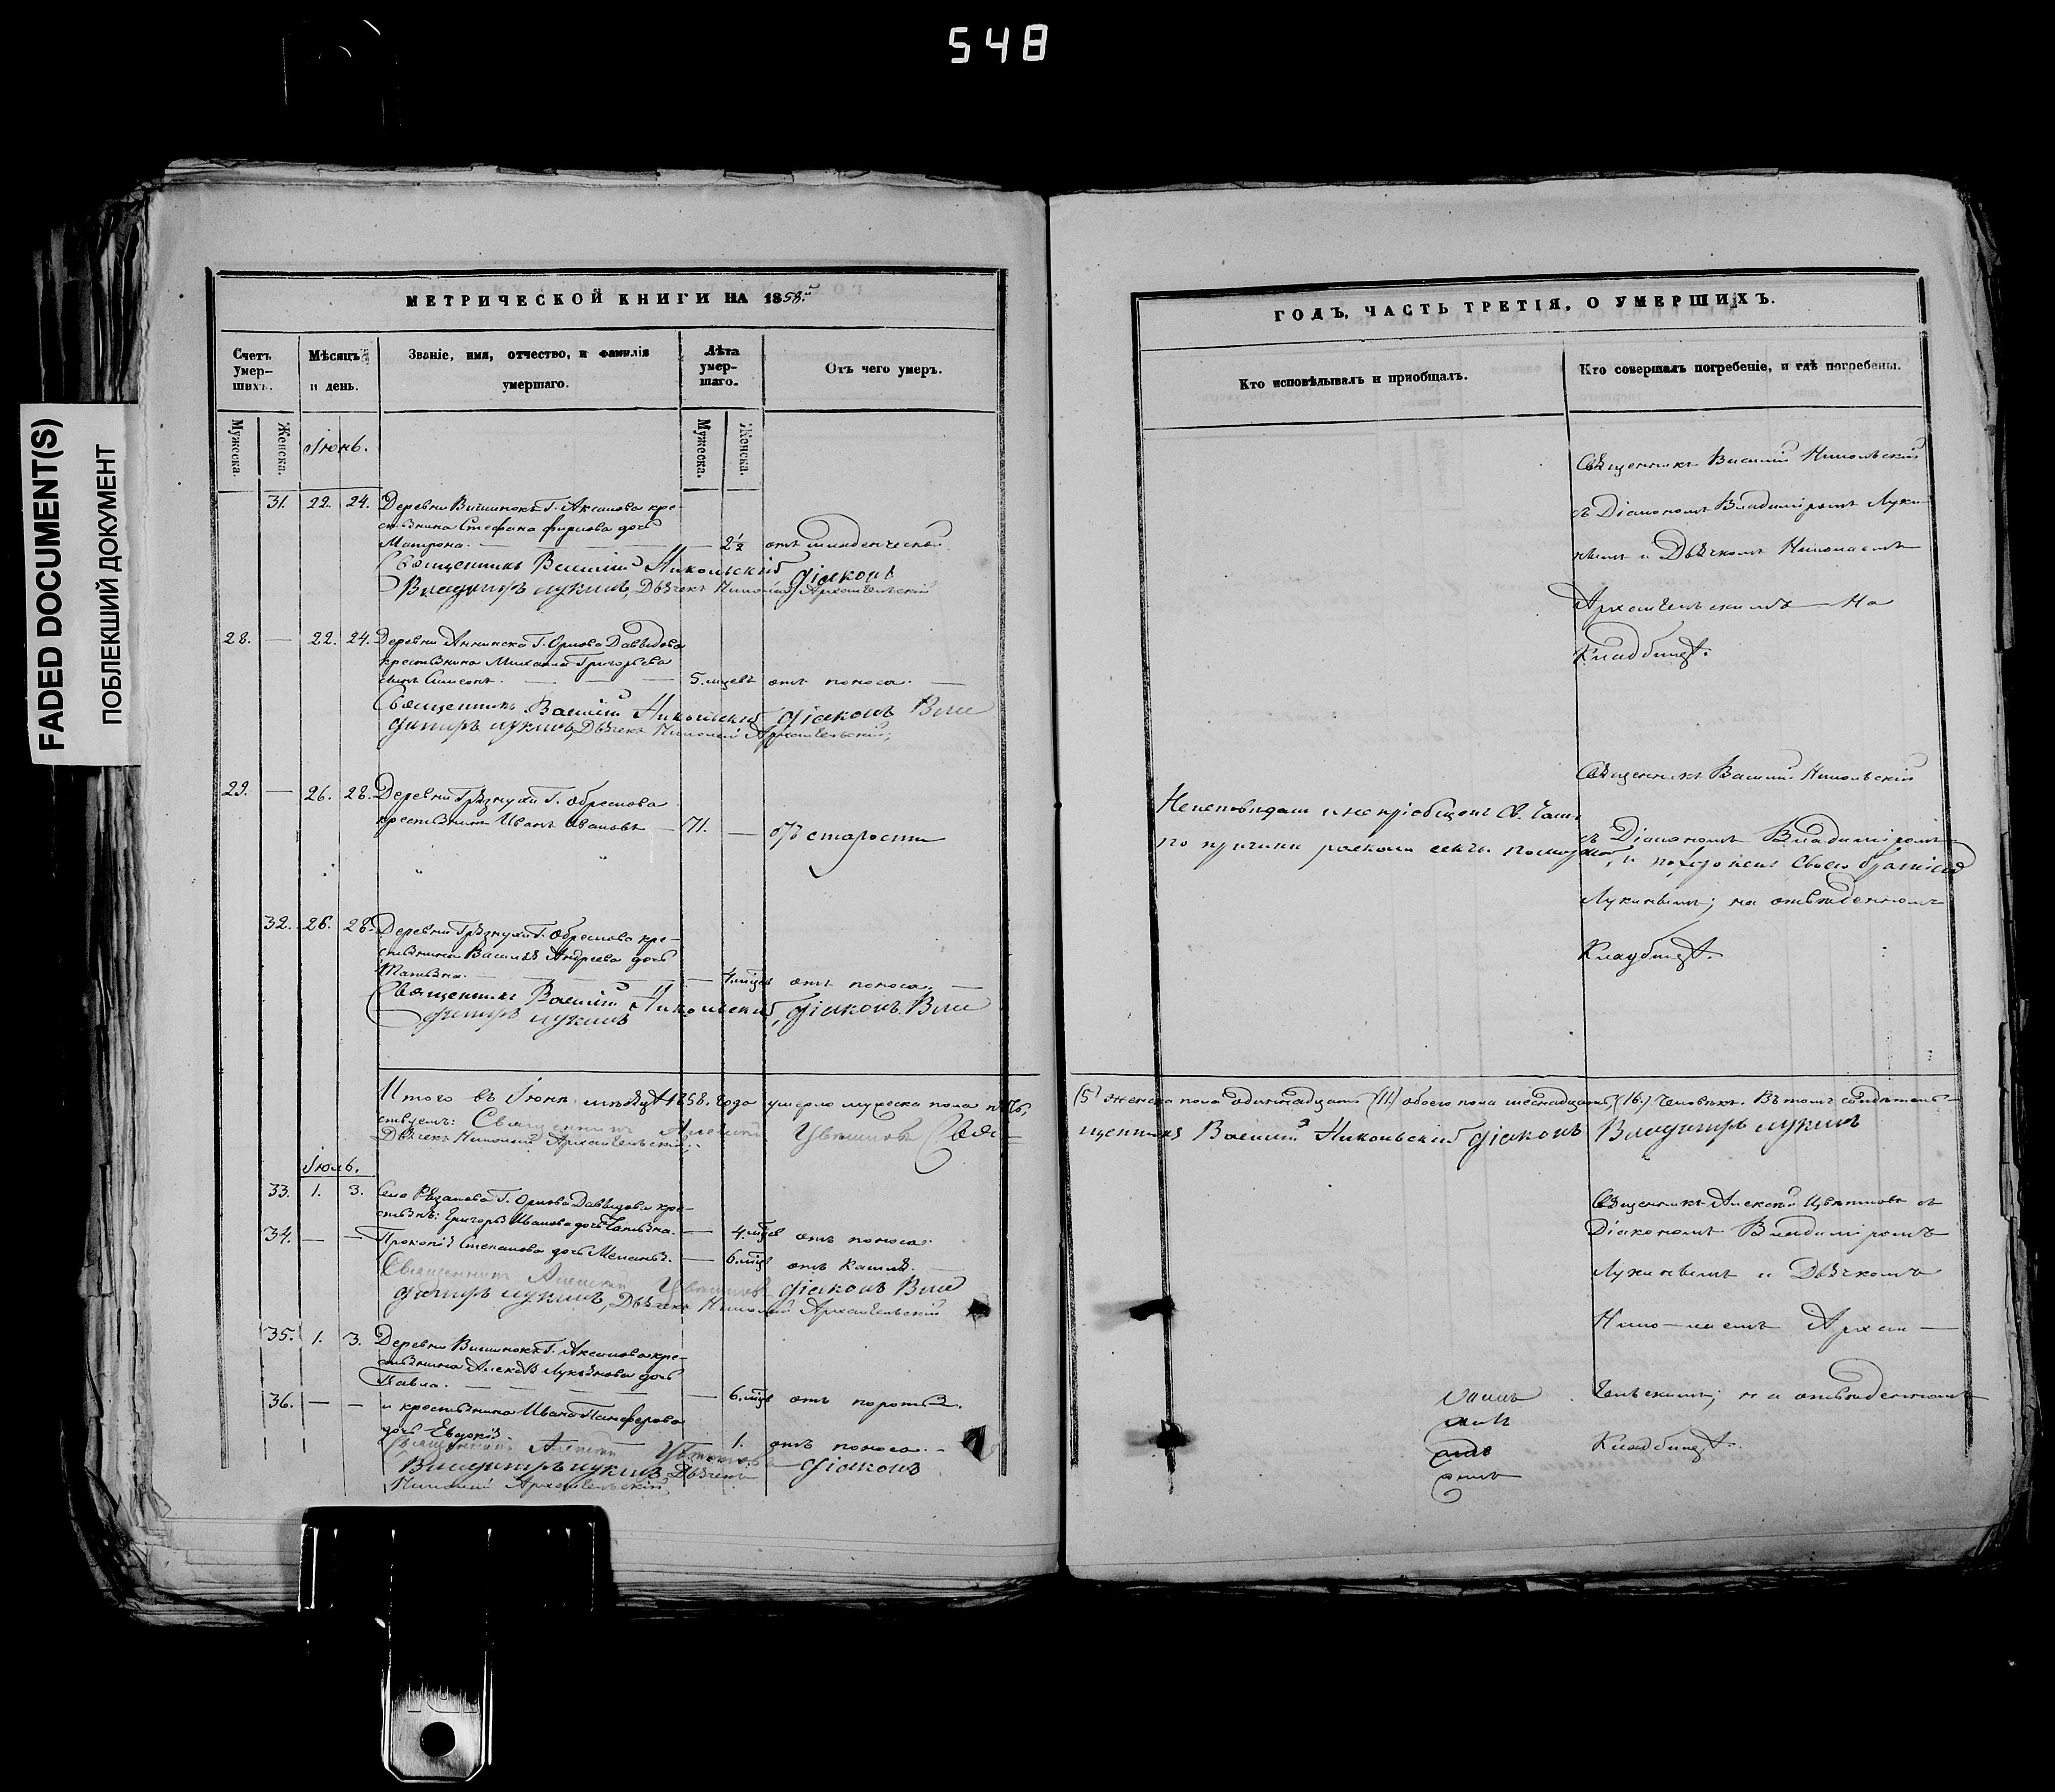 548
FADED DOCUMENT(S)
ПОБЛЕКШИЙ ДОКУМЕНТ
МЕТРИЧЕСКОЙ КНИГИ НА 1858й
Счетъ умер-
шихъ.
Мѣсяцъ
и день.
Званіе, имя, отчество, и фамилія
умершаго.
Лѣта
умер-
шаго.
Отъ чего умеръ.
Мужеска.
Женска.
Мужеска.
Женска.
Іюнь.
31. 22. 24. Деревни Г. Аксакова кре-
стьянина Стефана Фирсова дочь
Матрона. — 2½ отъ младенческой
Священникъ Василій Никольскій Діаконъ
Владиміръ Лукинъ, Дьячекъ Николай Архангельскій
28. — 22. 24. Деревни Аннинска Г. Орлова Давыдова
крестьянина Михаила Григорьева
сынъ Симеонъ. — 5. мцевъ отъ поноса. —
Священникъ Василій Никольскій Діаконъ Вла
диміръ Лукинъ, Дьячекъ Николай Архангельскій,
29. — 26. 28. Деревни Грязнухи Г. Обрескова
крестьянинъ Иванъ Ивановъ — 71. — отъ старости
32. 26. 28. Деревни Грязнухи Г. Обрескова кре-
стьянина Василья Андреева дочь
Татьяна. — 4 мцев отъ поноса. —
Священникъ Василій Никольскій, Діаконъ Вла
диміръ Лукинъ
Итого въ Іюнѣ мѣсяцѣ 1858. года умерло мужеска пола пять,
ствуемъ: Священникъ Алексій Цвѣтковъ Свя-
Дьячекъ Николай Архангельскій.
Іюль.
33. 1. 3. Села Рязанова Г. Орлова Давыдова кре-
стьянъ: Григорья Иванова дочь Татьяна. — 4. мцев отъ поноса.
34. — — Прокопія Степанова дочь — 6. мцев отъ кашля. —
Священникъ Алексій Цвѣтковъ Діаконъ Вла
диміръ Лукинъ, Дьячекъ Николай Архангельскій
35. 1. 3. Деревни Г. Аксакова кре-
стьянина Алексѣя Лукьянова дочь
Павла. — 6. мцев отъ
36. — — и крестьянина Ивана Панферова
дочь Евдокія. 1. отъ поноса. —
Священникъ Алексій Цвѣтковъ Діаконъ
Владиміръ Лукинъ Дьячекъ
Николай Архангельскій
ГОДЪ, ЧАСТЬ ТРЕТІЯ, О УМЕРШИХЪ.
Кто исповѣдывалъ и пріобщалъ.
Кто совершалъ погребеніе, и гдѣ погребены.
Священникъ Василій Никольскій
съ Діакономъ Владиміромъ Луки-
нымъ и Дьячкомъ Николаемъ
Архангельскимъ — На
Кладбищѣ.
Священникъ Василій Никольскій
съ Діакономъ Владиміромъ
Лукинымъ; на отведенномъ
Кладбищѣ.
по причинѣ раскола секты
(5) женска пола одиннадцать (11.) обоего пола шестнадцать, (16.) человѣкъ. Въ томъ свидѣтель-
щенникъ Василій Никольскій Діаконъ Владиміръ Лукинъ
Священникъ Алексій Цвѣтковъ съ
Діакономъ Владиміромъ
Лукинымъ и Дьячкомъ
Нико-лаемъ Архан —
гельскимъ; на отведенномъ
Кладбищѣ.